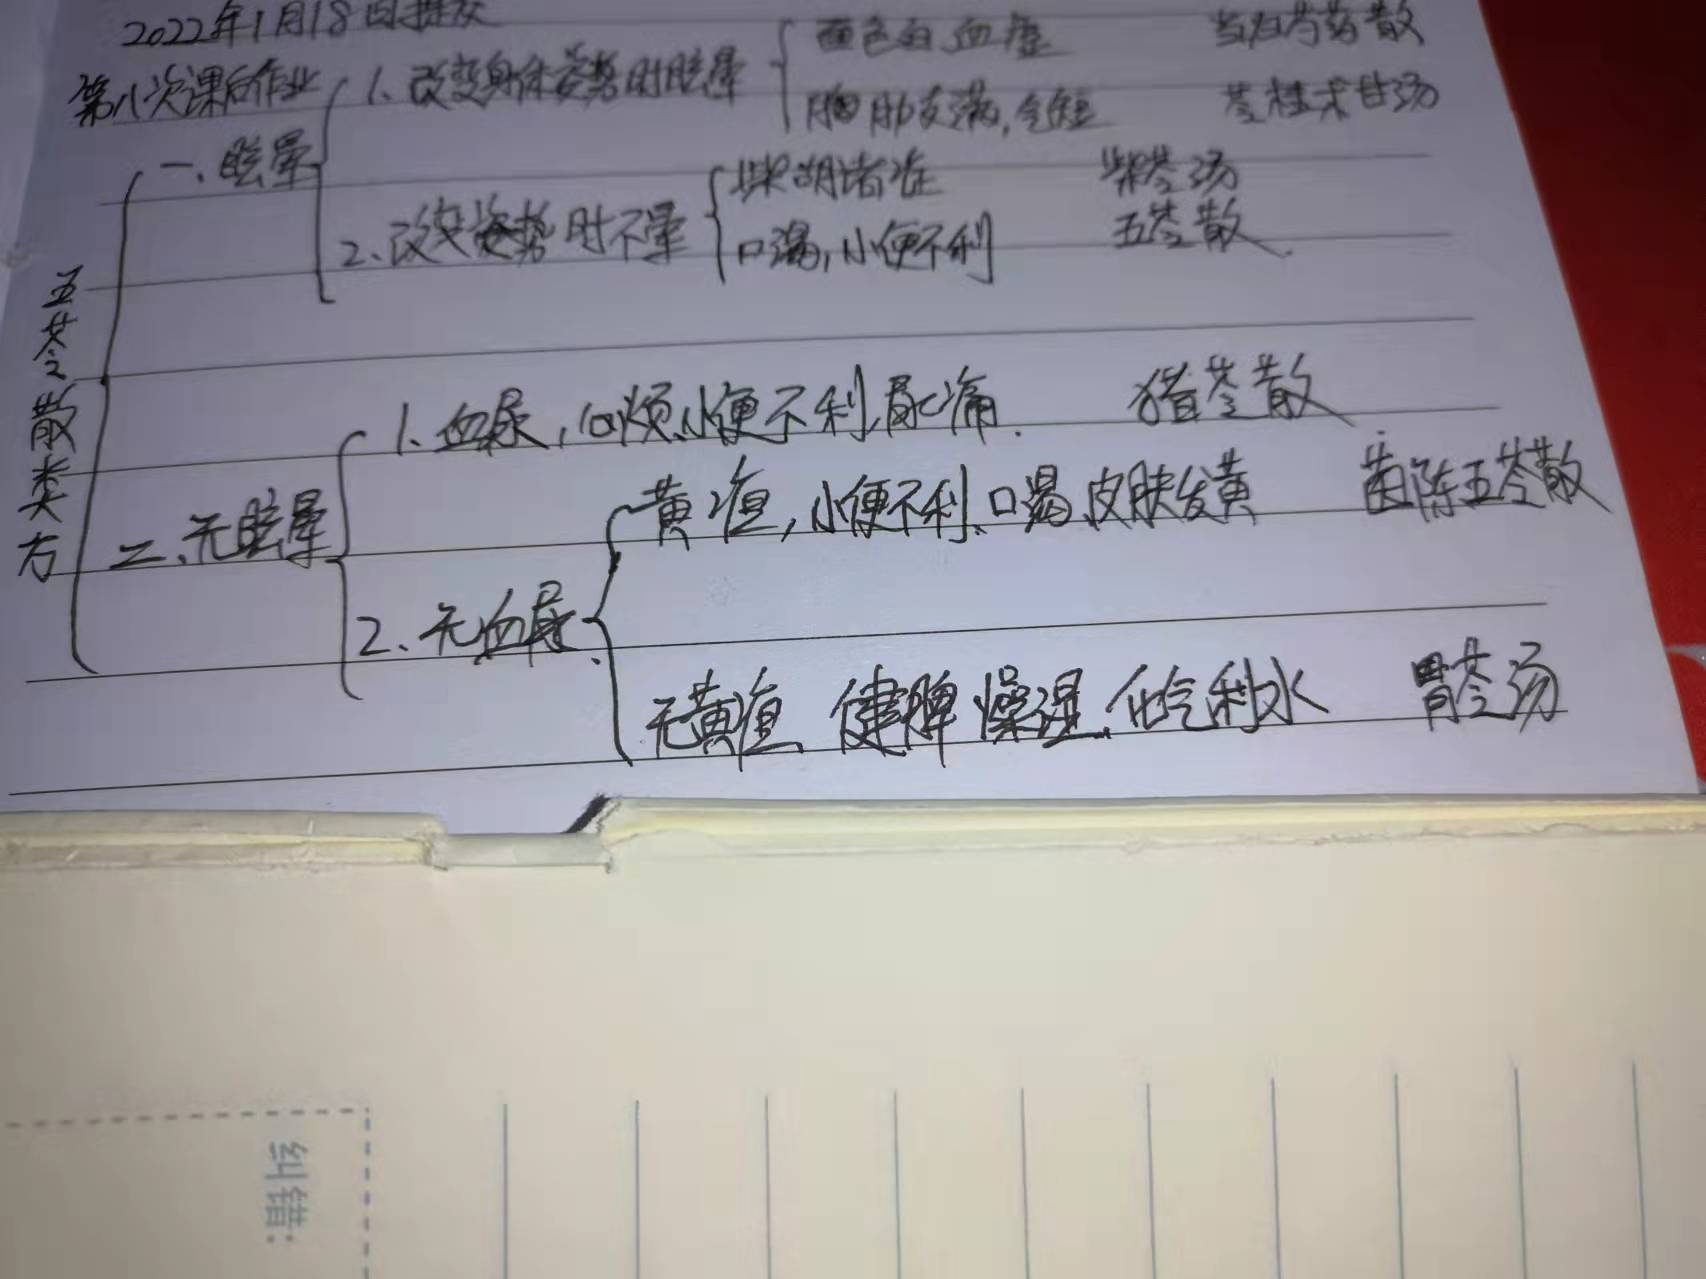 2022年1月18日提交
第八次课后作业
五苓散类方
一、眩晕
1、改变身体姿势时眩晕
面色白 血虚 当归芍药散
胸胁支满,气短 苓桂术甘汤
2、改变姿势时不晕
柴胡诸症 柴苓汤
口渴,小便不利 五苓散.
二、无眩晕
1、血尿,心烦、小便不利、尿痛. 猪苓散.
2、无血尿.
黄疸,小便不利、口渴、皮肤发黄 茵陈五苓散
无黄疸、健脾燥湿、化气利水 胃苓汤
纠错: